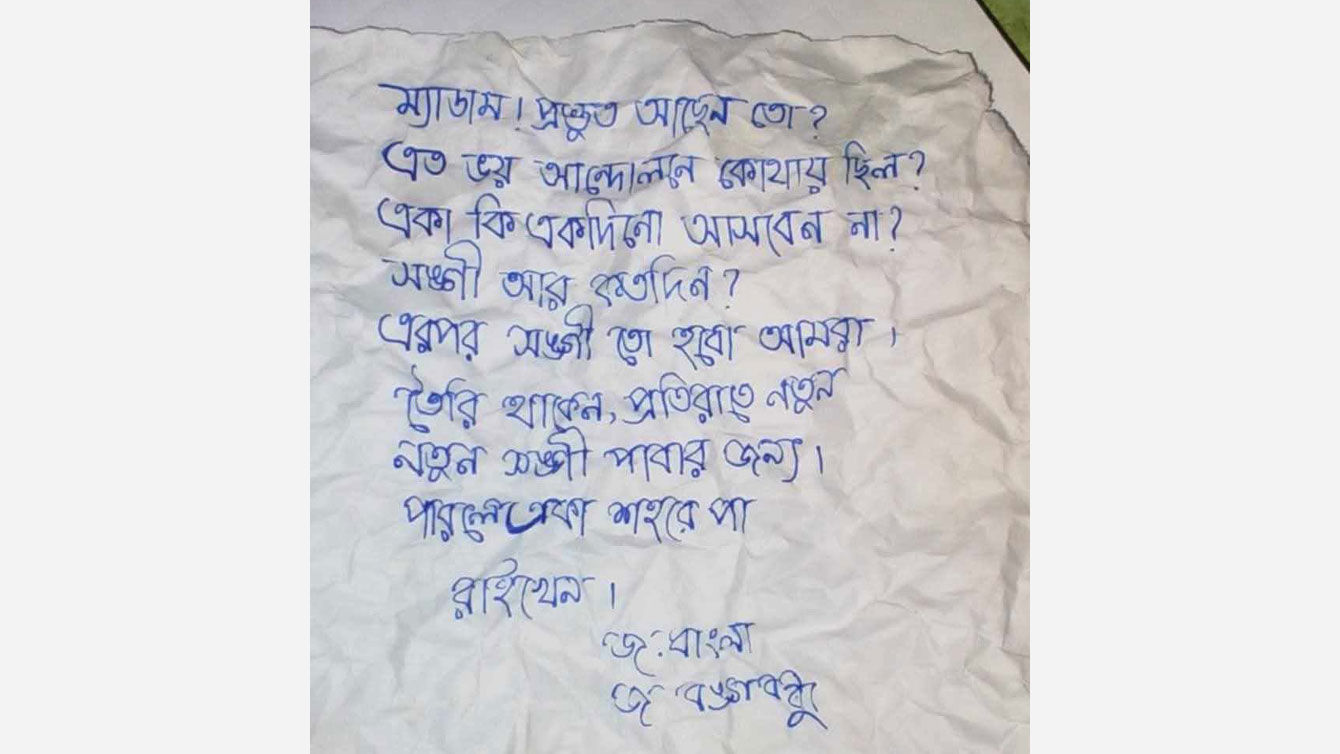 ম্যাডাম! প্রস্তুত আছেন তো?
এত ভয় আন্দোলনে কোথায় ছিল?
একা কি একদিনো আসবেন না?
সঙ্গী আর কতদিন?
এরপর সঙ্গী তো হবো আমরা।
তৈরি থাকেন, প্রতিরাতে নতুন
নতুন সঙ্গী পাবার জন্য।
পারলে একা শহরে পা
রাইখেন।
জ. বাংলা
জ বঙ্গবন্ধু